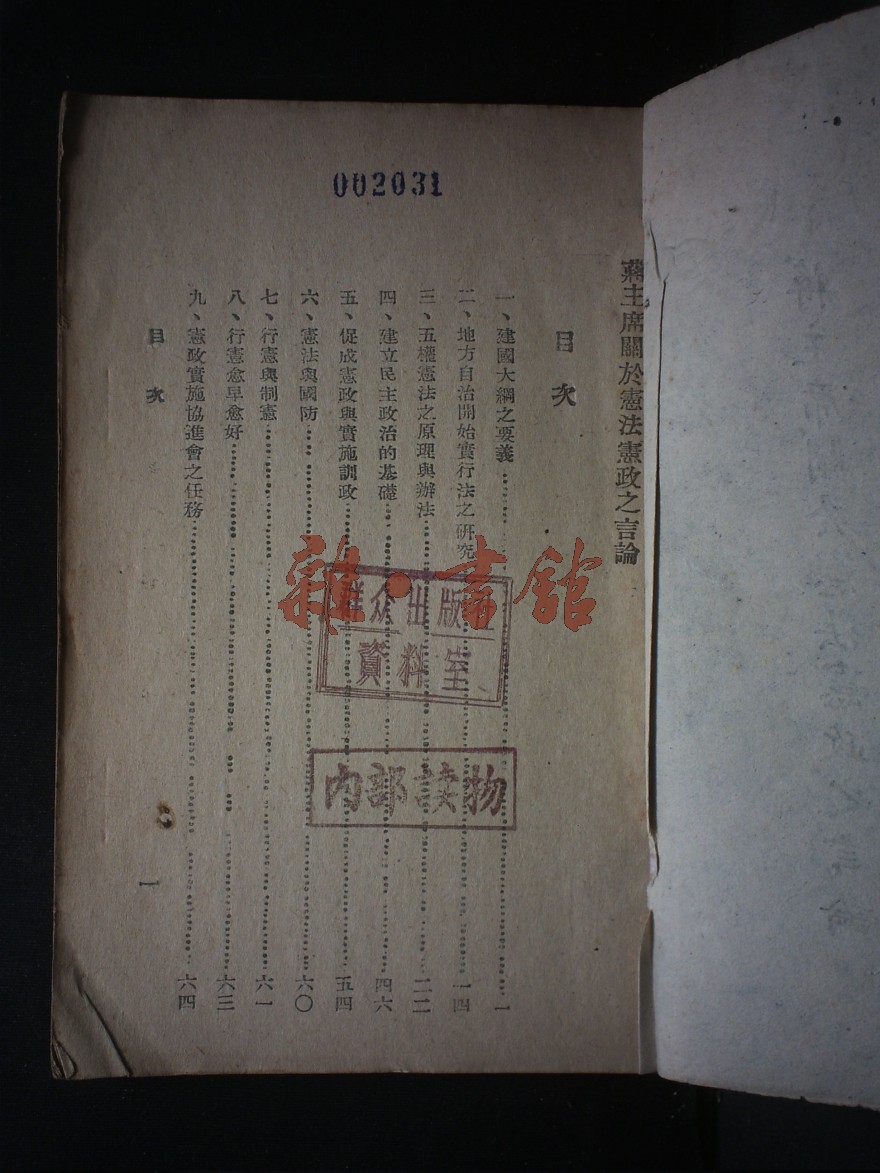 002031
蔣主席關於憲法憲政之言論
目次
一、建國大綱之要義……一
二、地方自治開始實行法之研究……一四
三、五權憲法之原理與辦法……二二
四、建立民主政治的基礎……四六
五、促成憲政與實施訓政……五四
六、憲法與國防……六〇
七、行憲與制憲……六一
八、行憲愈早愈好……六三
九、憲政實施協進會之任務……六四
目次
一
雜·書館
群众出版
資料室
内部读物